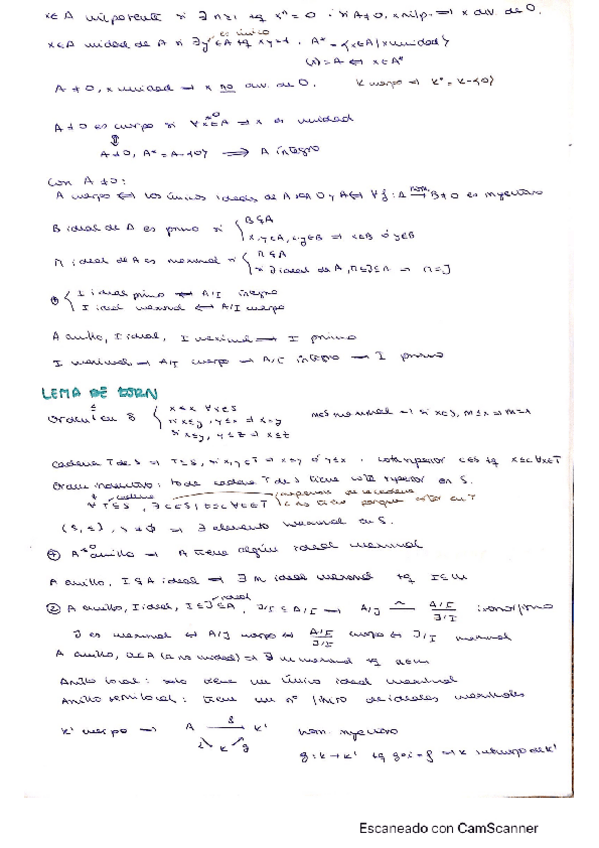 x∈A nilpotente si ∃ n≥1 tq xⁿ = 0 . si A≠0, x nilp. ⟹ x div. de 0.
es único
x∈A unidad de A si ∃y∈A tq xy=1 . A* = {x∈A / x unidad}
(x)=A ⟺ x∈A*
A≠0, x unidad ⟹ x no div. de 0. K cuerpo ⟹ K* = K-{0}
A≠0 es cuerpo si ∀x∈A ⟹ x es unidad
⇕
A≠0, A* = A-{0} ⟹ A íntegro
Con A≠0:
A cuerpo ⟺ los únicos ideales de A son 0 y A ⟺ ∀f: A → B≠0 es inyectivo
B ideal de A es primo si { B⊊A
x,y∈A, xy∈B ⟹ x∈B ó y∈B
M ideal de A es maximal si { M⊊A
si J ideal de A, M⊆J⊊A ⟹ M=J
{ I ideal primo ⟺ A/I íntegro
I ideal maximal ⟺ A/I cuerpo
A anillo, I ideal, I maximal ⟹ I primo
I maximal ⟹ A/I cuerpo ⟹ A/I íntegro ⟹ I primo
LEMA DE ZORN
Orden ≤ en S { x≤x ∀x∈S
si x≤y, y≤x ⟹ x=y
si x≤y, y≤z ⟹ x≤z
m∈S maximal ⟹ si x∈S, m≤x ⟹ m=x
cadena T de S ⟹ T⊆S, si x,y∈T ⟹ x≤y ó y≤x . cota superior c∈S tq x≤c ∀x∈T
Orden inductivo: toda cadena T de S tiene cota superior en S.
∀ T⊆S, ∃ c∈S / x≤c ∀x∈T
c no tiene porque estar en T
(S,≤), S≠∅ ⟹ ∃ elemento maximal en S.
① A≠0 anillo ⟹ A tiene algún ideal maximal
A anillo, I⊊A ideal ⟹ ∃ M ideal maximal tq I⊆M
② A anillo, I ideal, I⊆J⊆A, J/I ⊆ A/I ⟹ A/J ≃ (A/I)/(J/I) isomorfismo
J es maximal ⟺ A/J cuerpo ⟺ (A/I)/(J/I) cuerpo ⟺ J/I maximal
A anillo, a∈A (a no unidad) ⟹ ∃ M maximal tq a∈M
Anillo local: solo tiene un único ideal maximal
Anillo semilocal: tiene un nº finito de ideales maximales
K' cuerpo ⟹ A f→ K' hom. inyectivo
i K g
g: K→K' tq g∘i=f ⟹ K subcuerpo de K'
Escaneado con CamScanner